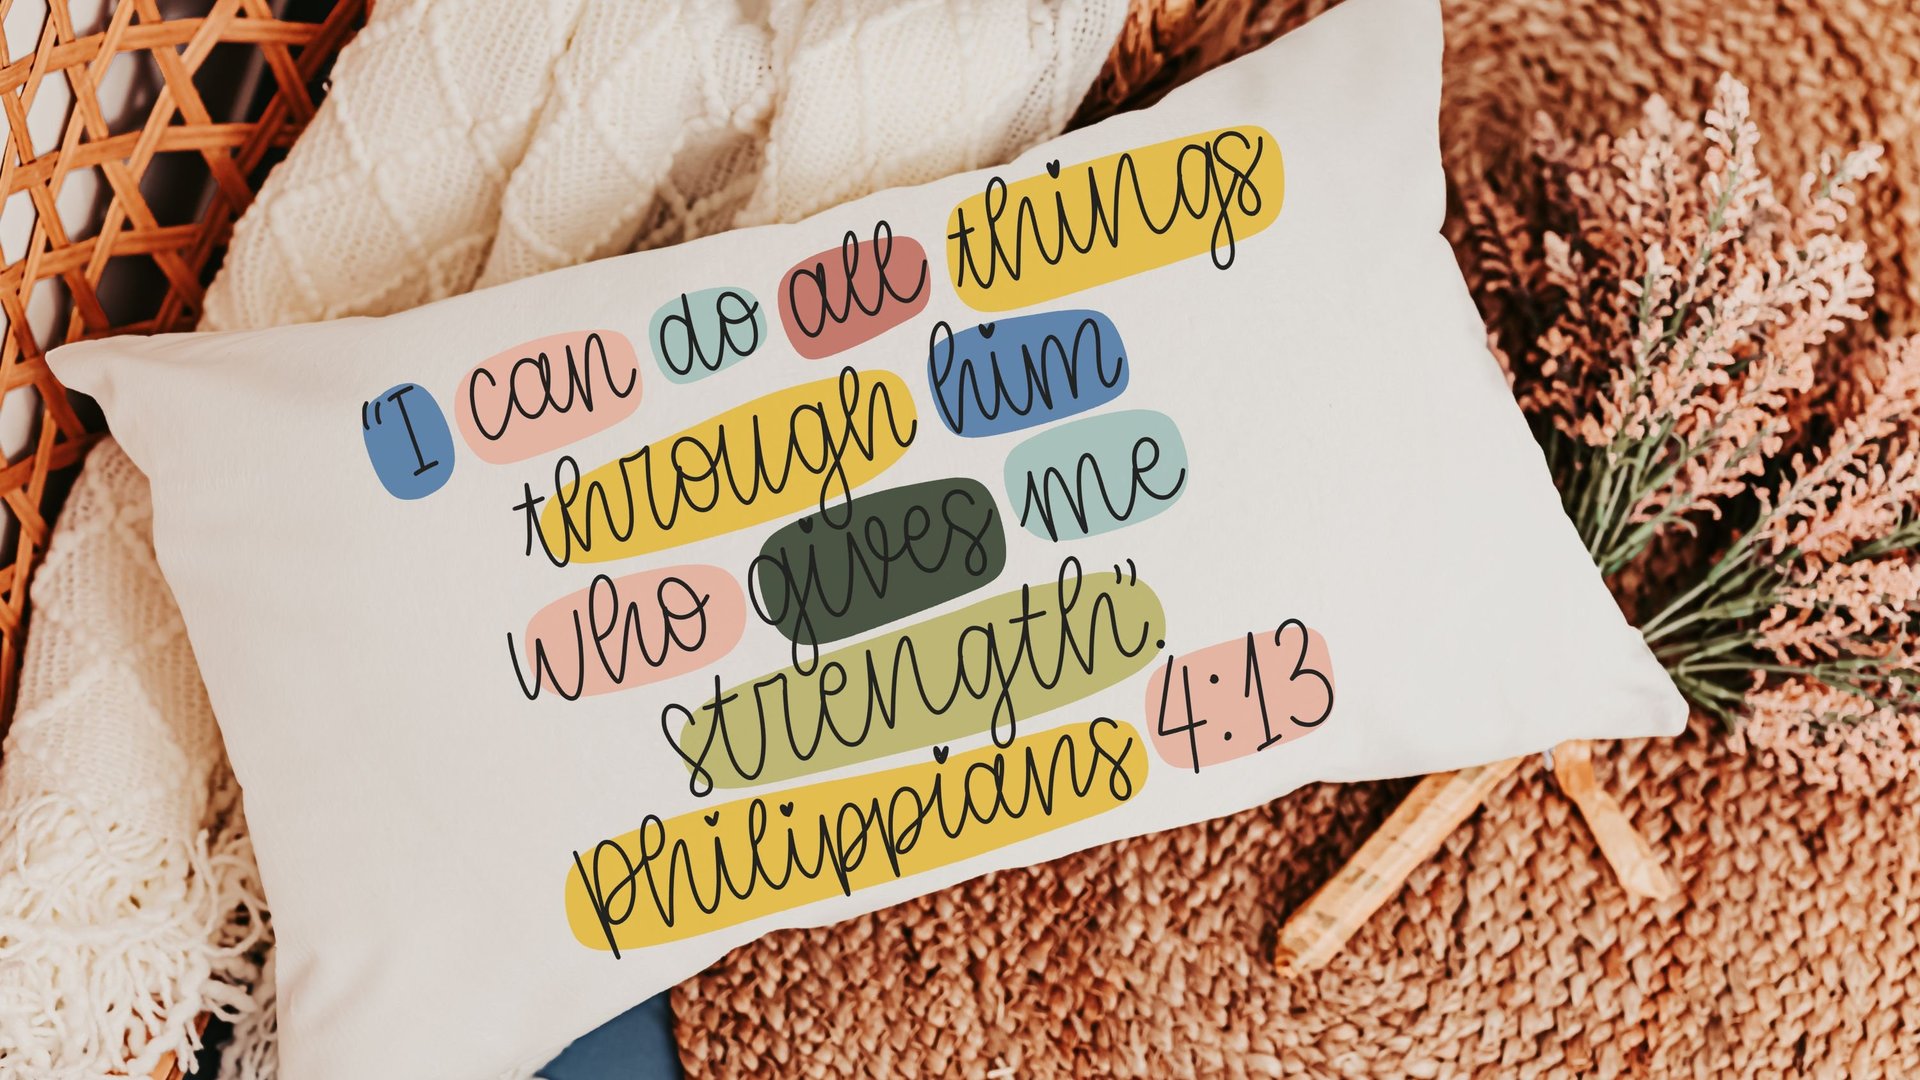 "I can do all things
through him
who gives me
strength".
philippians 4:13